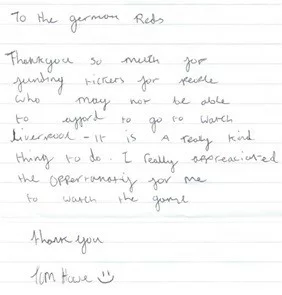 To the german Reds
Thankyou so much for
funding tickets for people
who may not be able
to afford to go to watch
Liverpool - it is a realy kind
thing to do. I really appreaciated
the opportunaty for me
to watch the game
thank you
Tom Howe